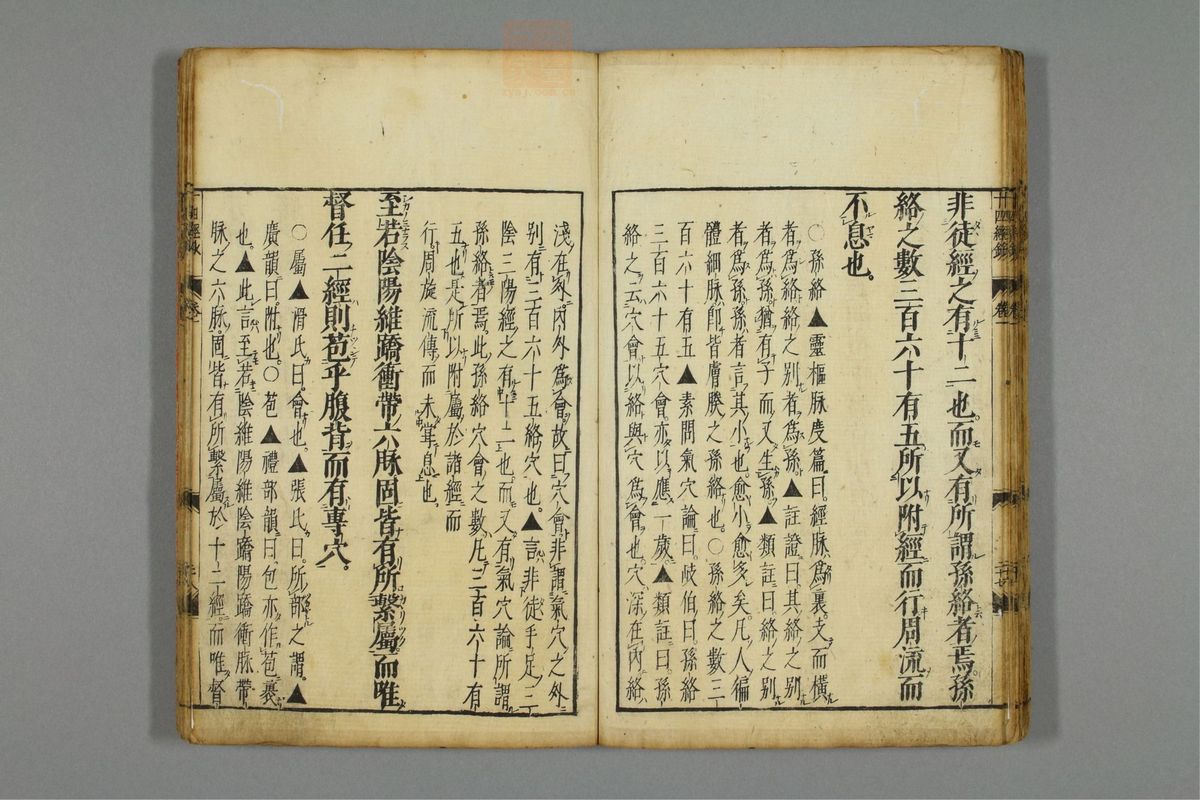 非徒經之有十二也而又有所謂孫絡者焉孫
絡之數三百六十有五所以附經而行周流而
不息也。
○孫絡▲靈樞脉度篇曰。經脉爲裏。支而橫
者。爲絡。絡之別者。爲孫。▲註證曰。其絡之別
者。爲孫。猶有子而又生孫▲類註曰絡之別
者。爲孫。孫者言其小也。愈小愈多矣。凡人徧
體細脉。卽皆膚腠之孫絡也。○孫絡之數三
百六十有五▲素問氣穴論曰。歧伯曰。孫絡
三百六十五穴會。亦以應一歲。▲類註曰。孫
絡之云穴會以絡與穴爲會也。穴深在內絡
淺在外。內外爲會故曰穴會非謂氣穴之外
別有三百六十五絡穴也。▲言非徒手足三
陰三陽經之有十二也而又有氣穴論所謂
孫絡者焉。此孫絡穴會之數凡三百六十有
五也是所以附屬於諸經而
行周旋流傳而未掌息也
至若陰陽維蹻衝帶六脉固皆有所繫屬而唯
督任二經則苞乎腹背而有專穴。
○屬▲滑氏曰。會也。▲張氏曰。所部之謂。▲
廣韻曰。附也。○苞▲禮部韻曰。包亦作苞裹
也。▲此言至若陰維陽維陰蹻陽蹻衝脉帶
脉之六脉。固皆有所繫屬於十二經。而唯督